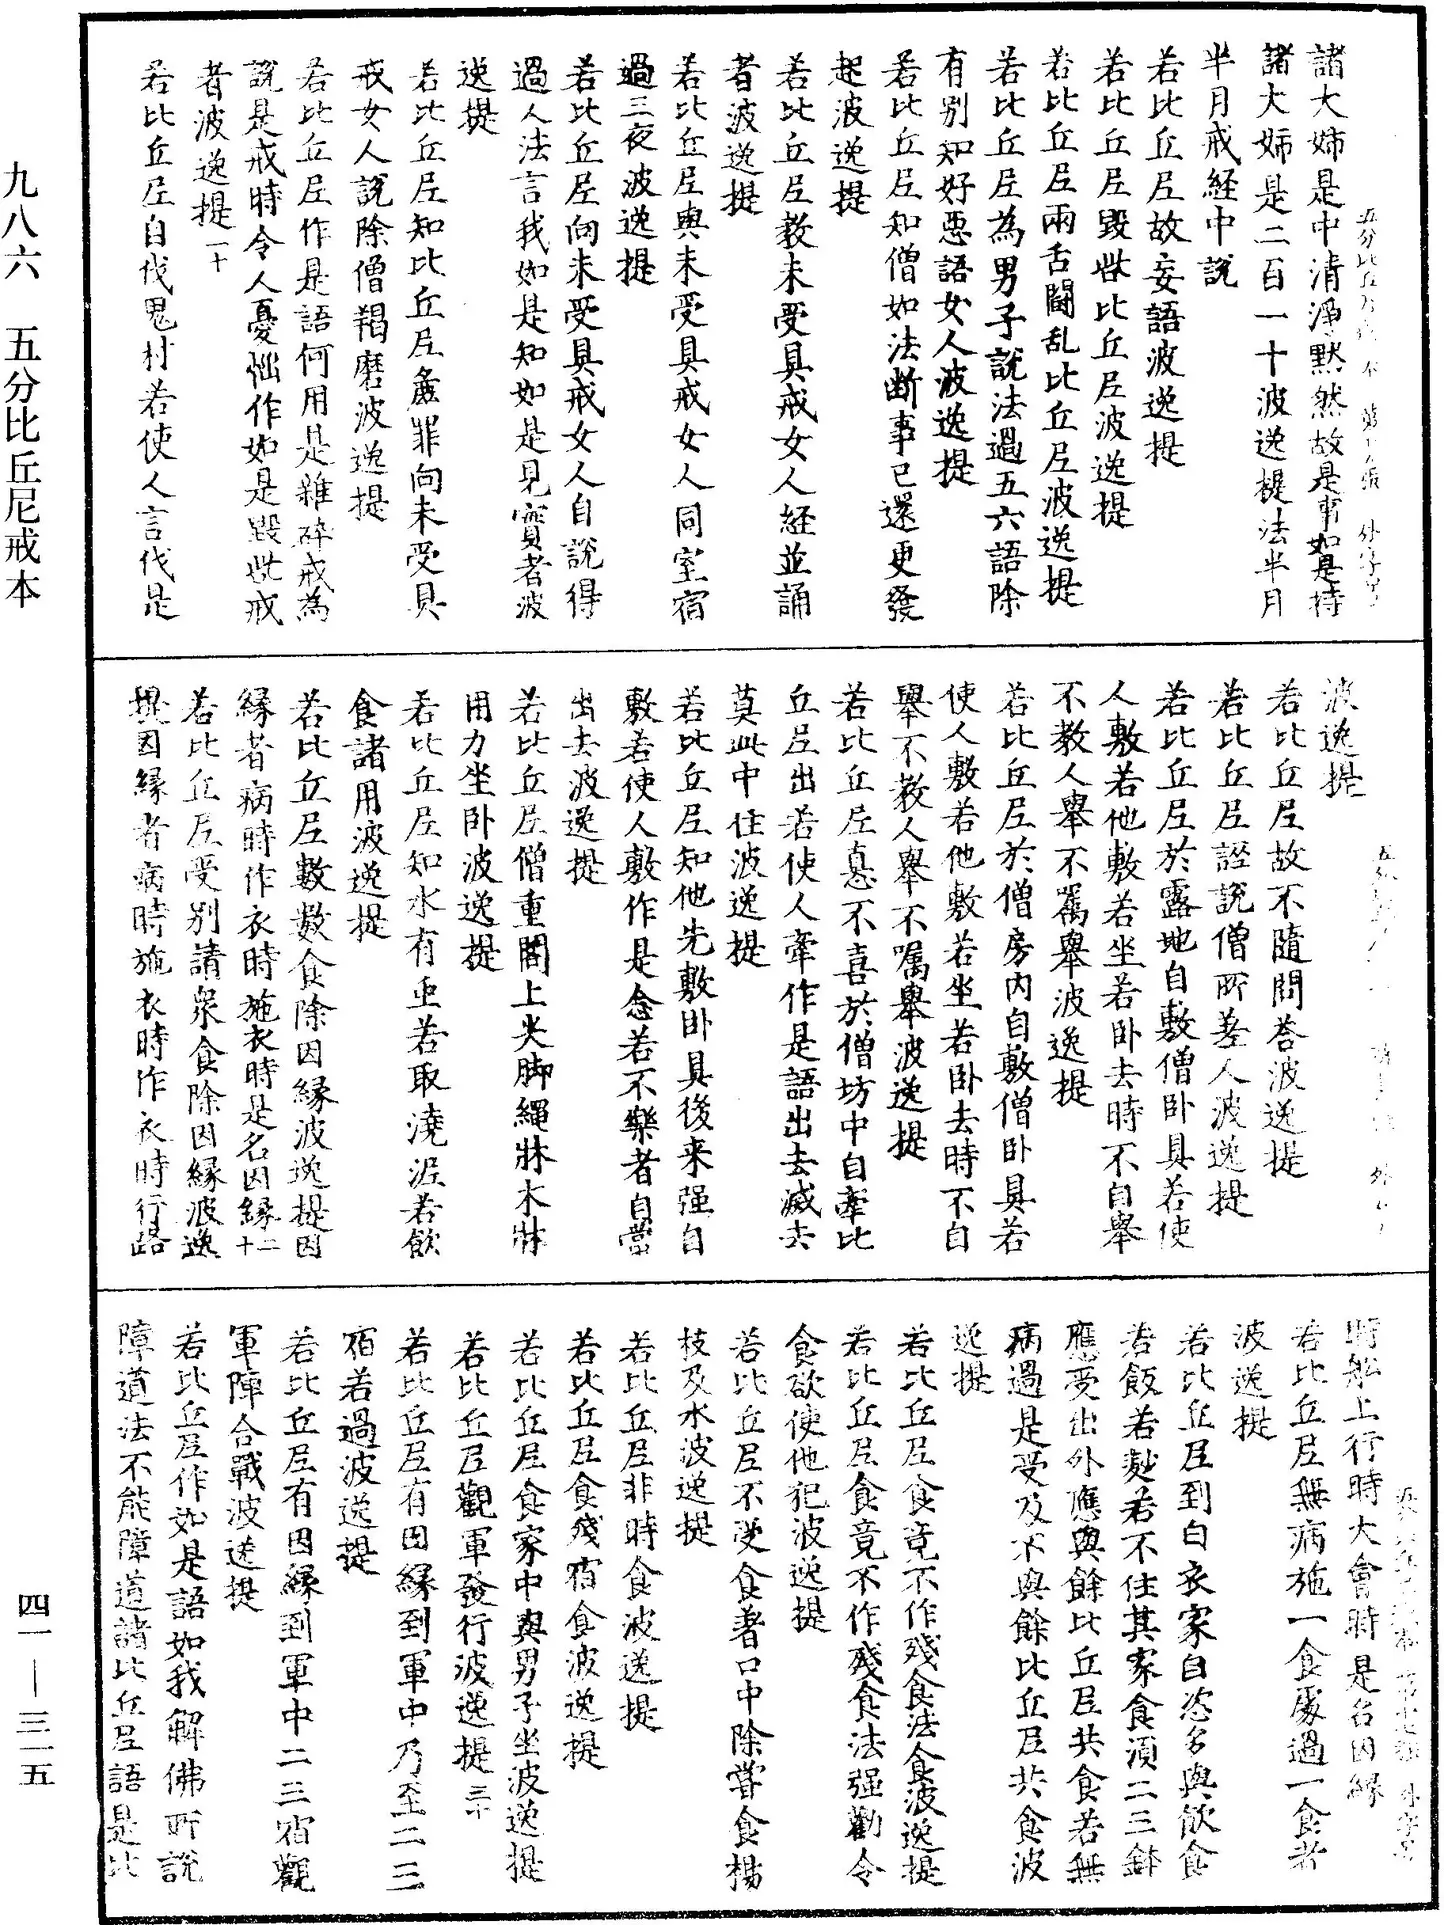 諸大姊是中清淨默然故是事如是持
諸大姊是二百一十波逸提法半月
半月戒經中說
若比丘尼故妄語波逸提
若比丘尼毀呰比丘尼波逸提
若比丘尼兩舌鬪乱比丘尼波逸提
若比丘尼為男子說法過五六語除
有別知好惡語女人波逸提
若比丘尼知僧如法斷事已還更發
起波逸提
若比丘尼教未受具戒女人經並誦
者波逸提
若比丘尼與未受具戒女人同室宿
過三夜波逸提
若比丘尼向未受具戒女人自說得
過人法言我如是知如是見實者波
逸提
若比丘尼知比丘尼麁罪向未受具
戒女人說除僧羯磨波逸提
若比丘尼作是語何用是雜碎戒為
說是戒時令人憂惱作如是毀呰戒
者波逸提一十
若比丘尼自伐鬼村若使人言伐是
波逸提
若比丘尼故不隨問荅波逸提
若比丘尼誣說僧所差人波逸提
若比丘尼於露地自敷僧卧具若使
人敷若他敷若坐若卧去時不自舉
不教人舉不囑舉波逸提
若比丘尼於僧房內自敷僧卧具若
使人敷若他敷若坐若卧去時不自
舉不教人舉不囑舉波逸提
若比丘尼恚不喜於僧坊中自牽比
丘尼出若使人牽作是語出去滅去
莫此中住波逸提
若比丘尼知他先敷卧具後来强自
敷若使人敷作是念若不樂者自當
出去波逸提
若比丘尼僧重閣上尖脚繩牀木牀
用力坐卧波逸提
若比丘尼知水有虫若取澆泥若飲
食諸用波逸提
若比丘尼數數食除因緣波逸提因
緣者病時作衣時施衣時是名因緣二十
若比丘尼受別請衆食除因緣波逸
提因緣者病時施衣時作衣時行路
時舩上行時大會時是名因緣
若比丘尼無病施一食處過一食者
波逸提
若比丘尼到白衣家自恣多與飲食
若飯若麨若不住其家食須二三鉢
應受出外應與餘比丘尼共食若無
病過是受及不與餘比丘尼共食波
逸提
若比丘尼食竟不作殘食法食波逸提
若比丘尼食竟不作殘食法强勸令
食欲使他犯波逸提
若比丘尼不受食著口中除甞食楊
枝及水波逸提
若比丘尼非時食波逸提
若比丘尼食殘宿食波逸提
若比丘尼食家中與男子坐波逸提
若比丘尼觀軍發行波逸提三十
若比丘尼有因緣到軍中乃至二三
宿若過波逸提
若比丘尼有因緣到軍中二三宿觀
軍陣合戰波逸提
若比丘尼作如是語如我解佛所說
障道法不能障道諸比丘尼語是比
九八六　五分比丘尼戒本
四一—三二五